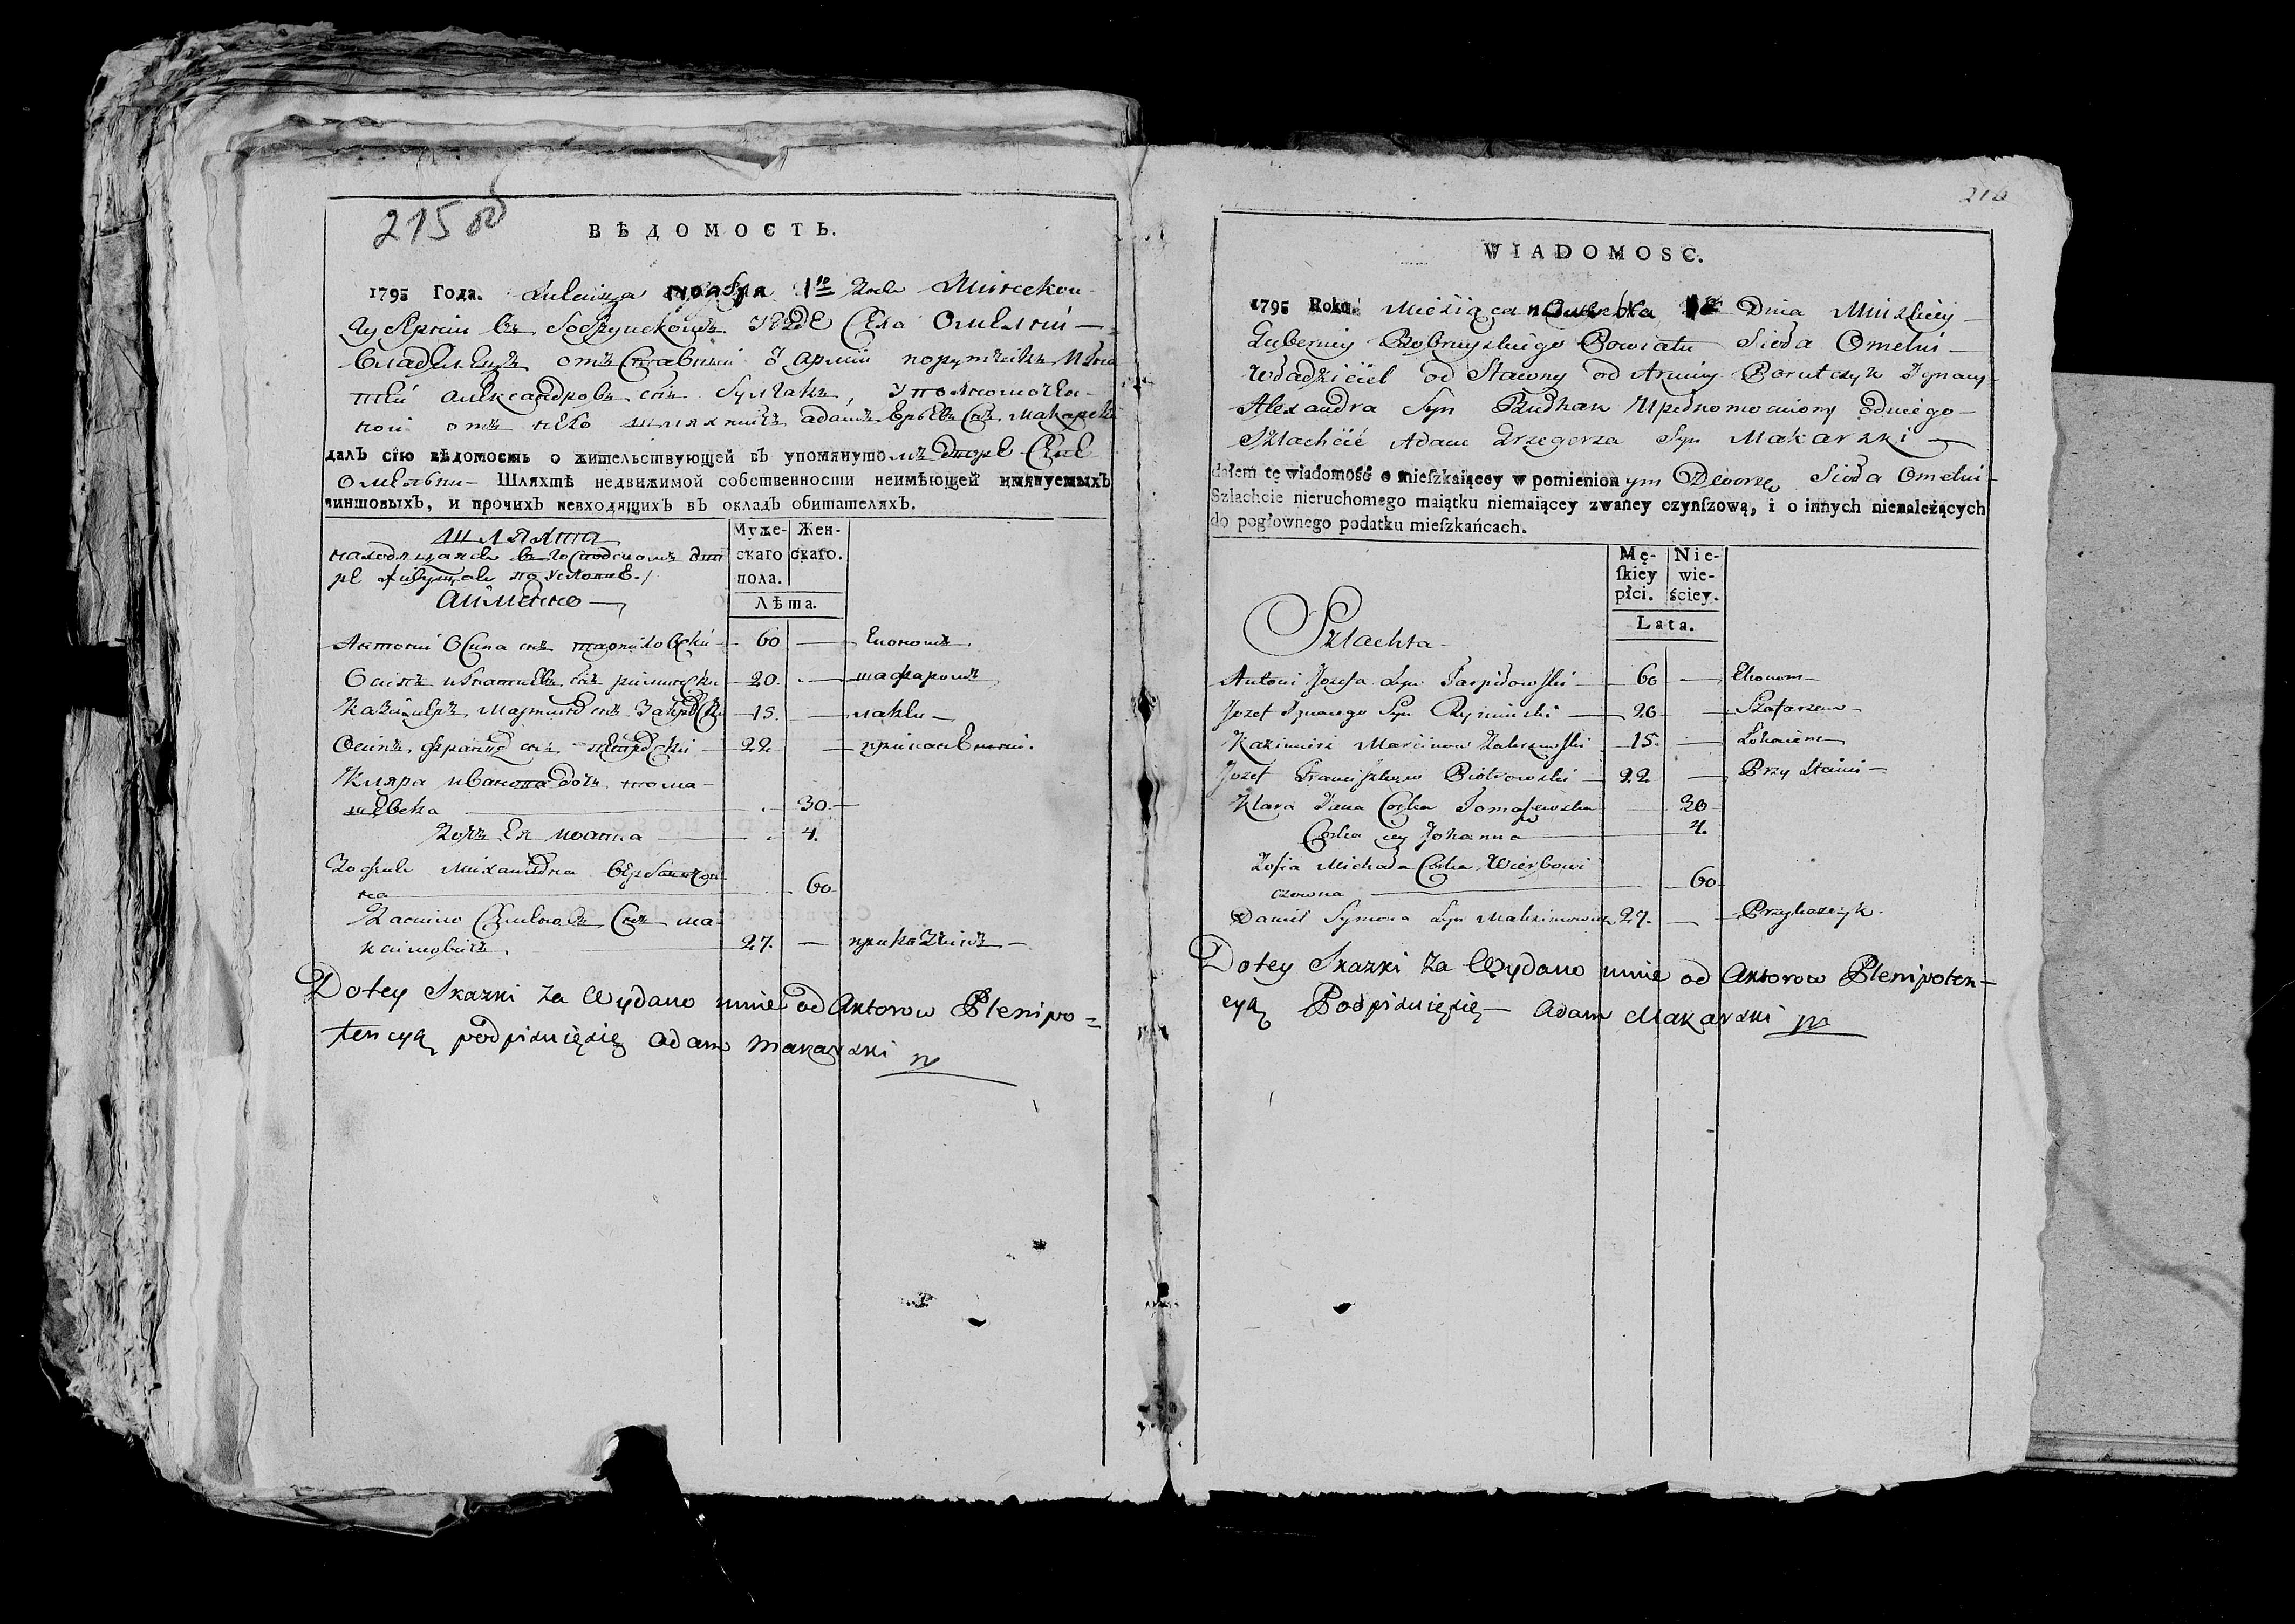 215 об
ВѢДОМОСТЬ.
1795 Года. Месяца ноября 1го дня Минскои
Губернии въ Бобруйскомъ уезде Села Омельни
Владелецъ отъ армии порутчикъ Игна
тей александровъ снъ Булгакъ, уполномочен-
ной отъ него шляхтичъ адамъ снъ макарски
далъ сїю вѣдомость о жительствующей въ упомянутомъ дворе Селе
Омельни Шляхтѣ недвижимой собственности неимѣющей имянуемыхъ
чиншовыхъ, и прочихъ невходящихъ въ окладъ обитателяхъ.
Муже- Жен-
скаго скаго.
пола.
Лѣта.
шляхта
находящаяся въ господскомъ дво
ре живущая
аимянно
Антони Осипа снъ 60 — Економъ
Осипъ игнатиевъ снъ римински 20. — шафаромъ
Казимиръ мартинов снъ 15. — лакеи
Осипъ францов снъ 22 —
Кляра иванова дочь тома-
шевска 30.
дочь Ея иоанна 4.
Зофия михаилова вербович
на 60
Данило Семионовъ Снъ ма
ксимовичъ 27. — приказчикъ
Dotey Skazki za Wydano mnie od Aktorow Plenipo=
tencyą podpisuięsię Adam Makarski
216
WIADOMOSC.
1795 Roku. Miesiąca Nowembra Dnia Minskiey
Gubernij Bobruyskiego Powiatu Sioła Omelni
Władziciel od Sławny od Armij Porutczyk Ignacy
Alexandra Syn Budhak Upełnomocniony odniego
Szlachcic Adam Grzegorza Syn Makarski
dałem tę wiadomość o mieſzkaiącey w pomienionym Dworze Sioła Omelni
Szlachcie nieruchomego maiątku niemaiącey zwaney czynſzową, i o innych nienależących
do pogłownego podatku mieſzkańcach.
Mę- Nie-
ſkiey wie-
płci. ściey.
Lata.
Szlachta
Antoni Jozefa Syn Tarpiłowski 60 — Ekonom
Jozef Ignacego Syn Rymiński 20 — Szafarzem
Kazimirz Marcinow Zakrzewski 15. — Lokaiem
Jozef Franciszkow Piotrowski 22 — Przy Stani
Klara Jana Corka Tomaszewska 30
Corka iey Johanna 4.
Zofia Michała Corka Wierbowi
czowna 60
Daniło Symona Syn Maksimowicz 27. — Przykazczyk.
Dotey Skazki za Wydano mnie od Aktorow Plenipoten-
cyą Podpisuięsię Adam Makarski